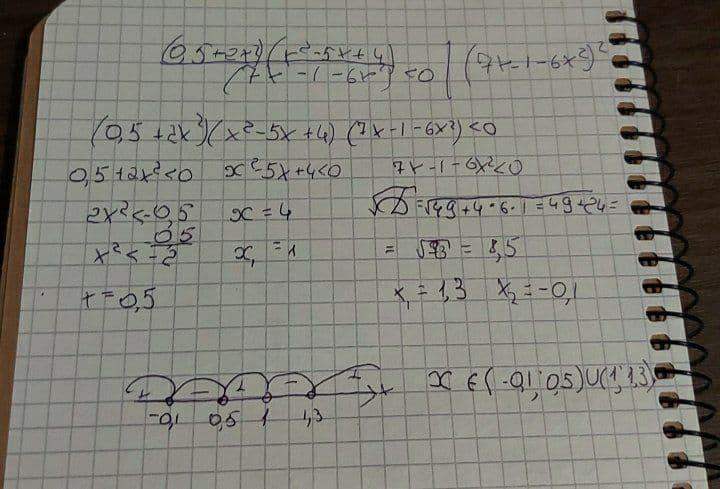 (0,5+2x²)(x²-5x+4)/(7x-1-6x²) <0 | (7x-1-6x²)²
(0,5+2x²)(x²-5x+4)(7x-1-6x²)<0
0,5+2x²<0 x²-5x+4<0 7x-1-6x²<0
2x²<-0,5 x=4 √D=√49+4·6·1=49+24=
x²<0,5/-2 x₁=1 =√73=8,5
x=0,5 x₁=1,3 x₂=-0,1
+ - + - + x x∈(-0,1;0,5)U(1;1,3)
-0,1 0,5 1 1,3